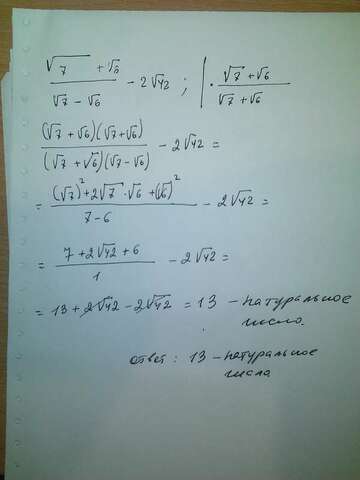 (√7 + √6)/(√7 - √6) - 2√42 ; | · (√7 + √6)/(√7 + √6)
((√7 + √6)(√7 + √6))/((√7 + √6)(√7 - √6)) - 2√42 =
= ((√7)² + 2√7 · √6 + (√6)²)/(7 - 6) - 2√42 =
= (7 + 2√42 + 6)/1 - 2√42 =
= 13 + 2√42 - 2√42 = 13 - натуральное
число.
ответ : 13 - натуральное
число